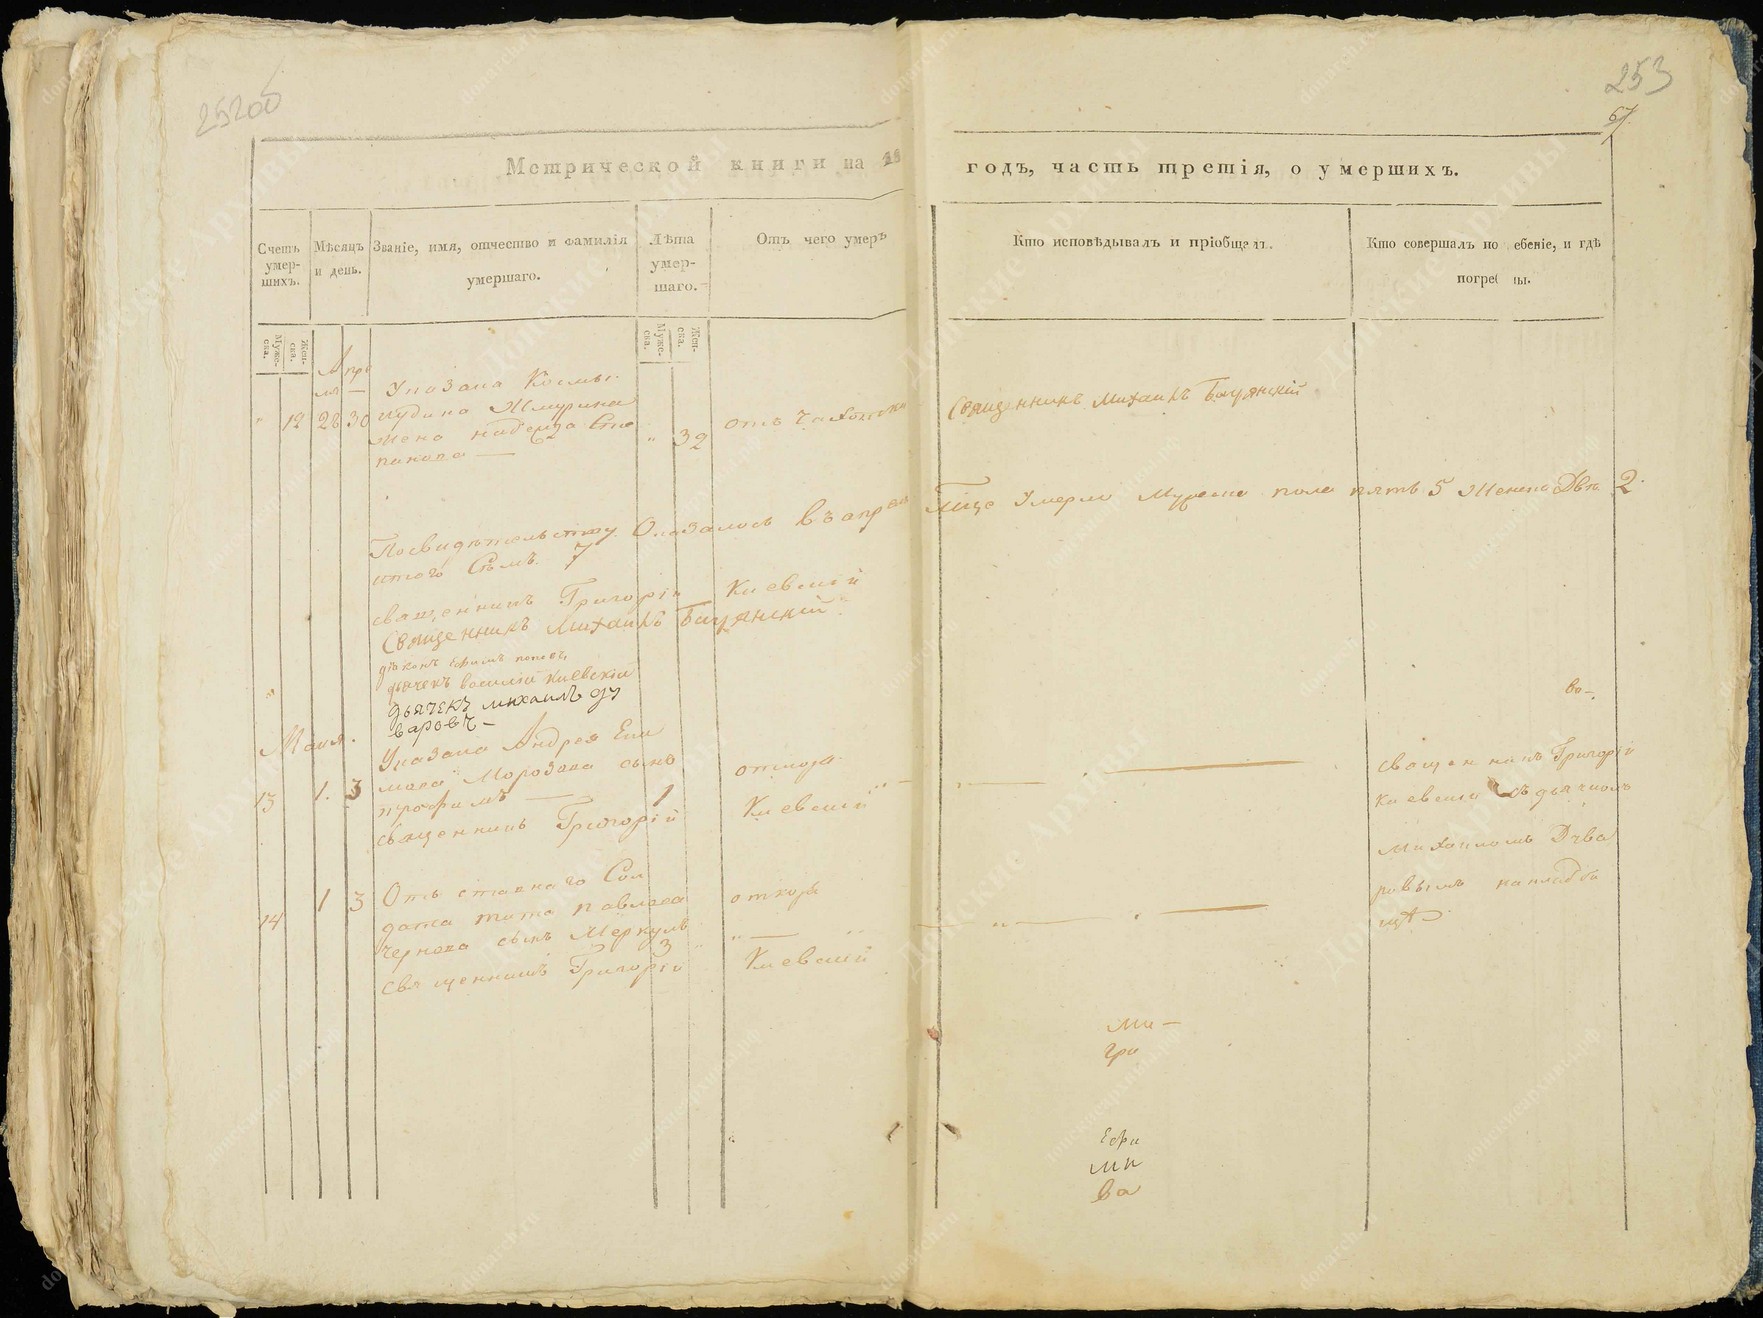 252об
253
67.
Метрической книги на 18
годъ, часть третія, о умершихъ.
Счетъ умер- шихъ.
Мѣсяцъ и день.
Званіе, имя, отчество и фамилія
умершаго.
Лѣта умер- шаго.
Отъ чего умеръ
Кто исповѣдывалъ и пріобщалъ.
Кто совершалъ по ебеніе, и гдѣ
погре ны.
Муже- ска.
Жен- ска.
Муже- ска.
Жен- ска.
Апре
ля —
Указака Космы
12 28 30
иудина Шмурина
жена надежда Сте
панова —
32
отъ чахотки
Священникъ Михаилъ Бачрянскій
Посвидѣтельству Оказалось въ апреле
мце Умерло Мужеска пола пять 5 Женска Двѣ 2.
итого Семь 7
священникъ Григорій Киевскій
Священникъ Михаилъ Бачрянскій
діаконъ Ефимъ поповъ
дьячекъ василій Киевскій
дьячекъ михаилъ ду
варовъ —
во-
Маия.
13 1. 3
Указака Андрея
Морозова сынъ
трофимъ — 1
откоря
священникъ Григорій Киевскій
священникъ Григорій
Киевскій съ дьячкомъ
Михаиломъ Дува
ровымъ накладби
щѣ
14 1 3
Отъ ставнаго Сол
дата тита павлова
чернова сынъ Меркулъ
3
откоря
священникъ Григорій Киевскій
ми —
гри
Ефи
ми
ва